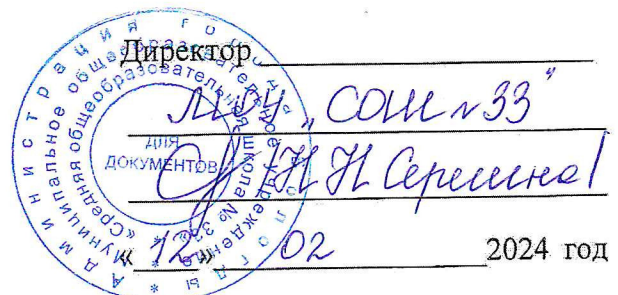 Директор
МОУ "СОШ №33"
/Н Н Серегина/
«12» 02 2024 год
Администрация города Вологды
Муниципальное общеобразовательное учреждение
«Средняя общеобразовательная школа № 33»
ДЛЯ
ДОКУМЕНТОВ